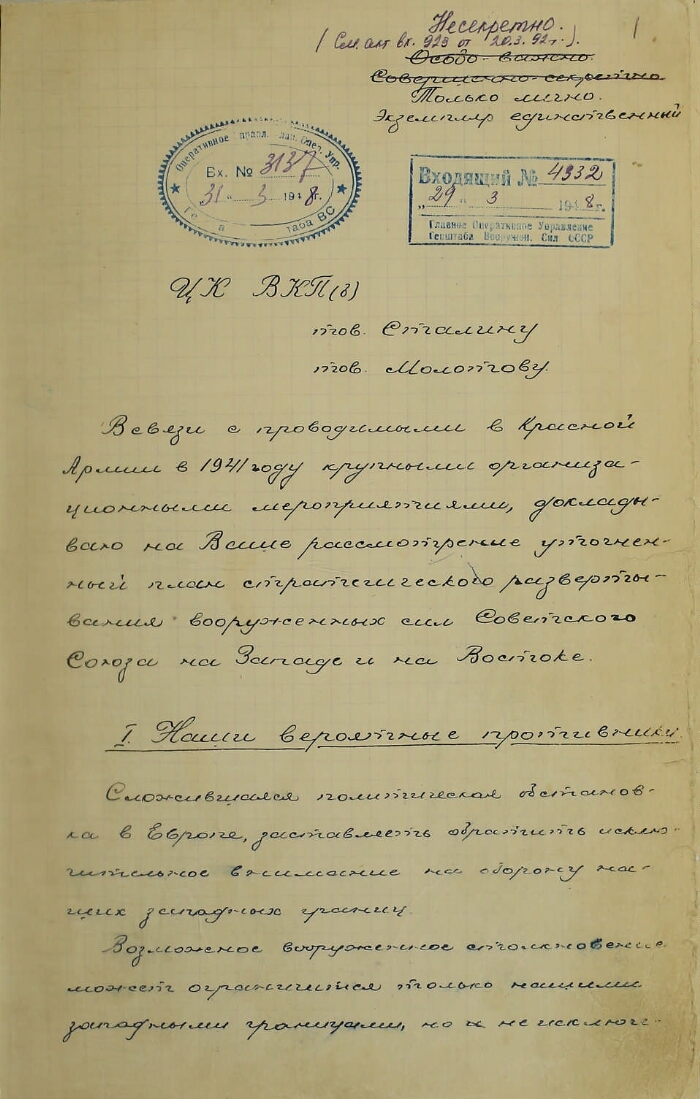 Несекретно.
(См. акт вх. 928 от 20.3.92 г.).
Особо важно.
Совершенно секретно
Только лично.
Экземпляр единственный
Оперативное Упр.
Вх. № 3137
31 3 194 8г.
таба ВС
Входящий № 4932
„29„ 3 194 8г.
Главное Оперативное Управление
Генштаба Вооружен. Сил СССР
ЦК ВКП(б)
тов. Сталину
тов. Молотову.
В связи с проводимыми в Красной
Армии в 1941 году крупными организа-
ционными мероприятиями, доклады-
ваю на Ваше рассмотрение уточнен-
ный план стратегического развёрты-
вания вооруженных сил Советского
Союза на Западе и на Востоке.
I. Наши вероятные противники.
Сложившаяся политическая обстанов-
ка в Европе, заставляет обратить исклю-
чительное внимание на оборону на-
ших западных границ.
Возможное вооруженное столкновение
может ограничится только нашими
западными границами, но и не исключ-